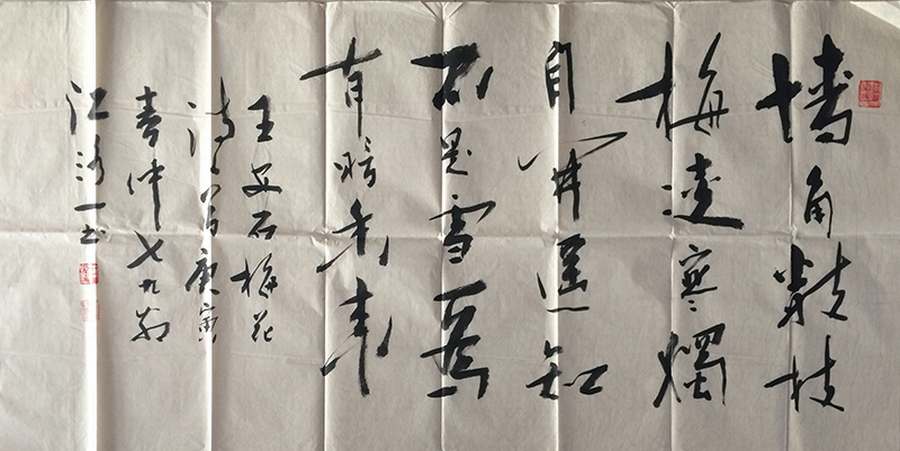 墙角數枝
梅凌寒獨
自開遥知
不是雪為
有暗香来
王安石梅花
诗一首庚寅
春仲七九翁
江 一书